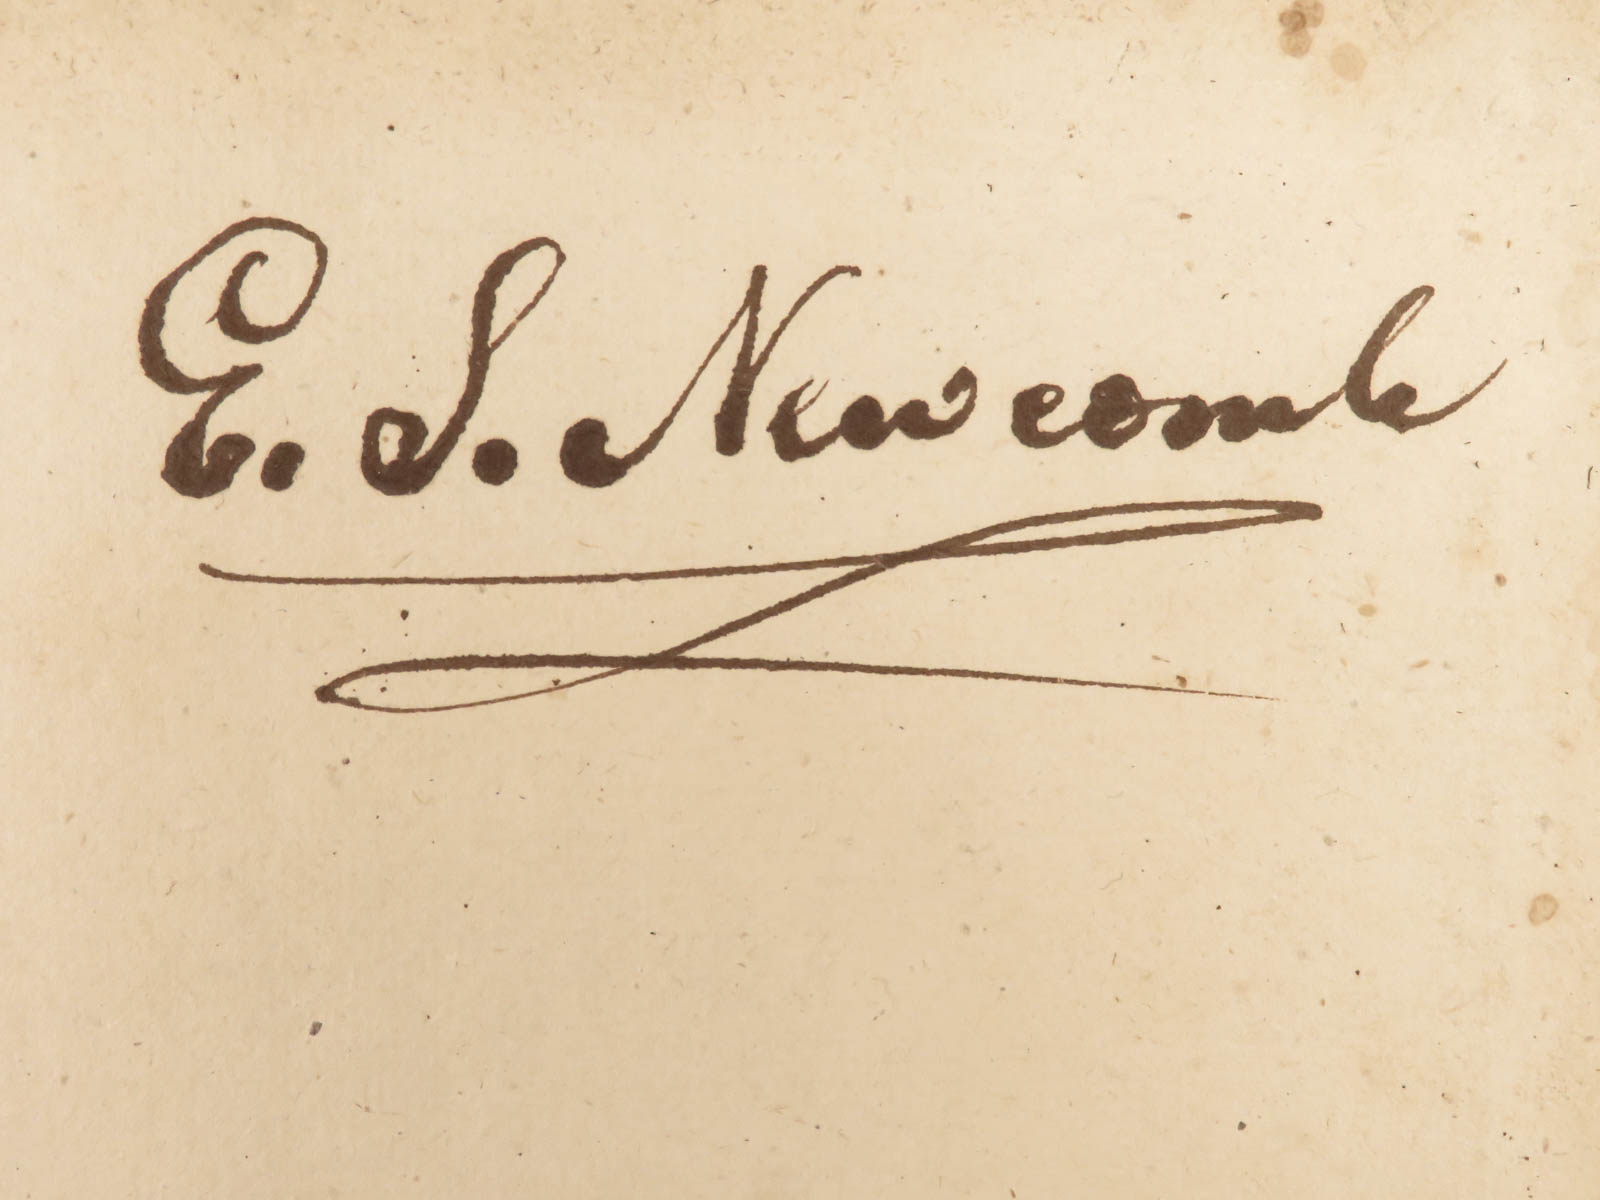 E. S. Newcomb